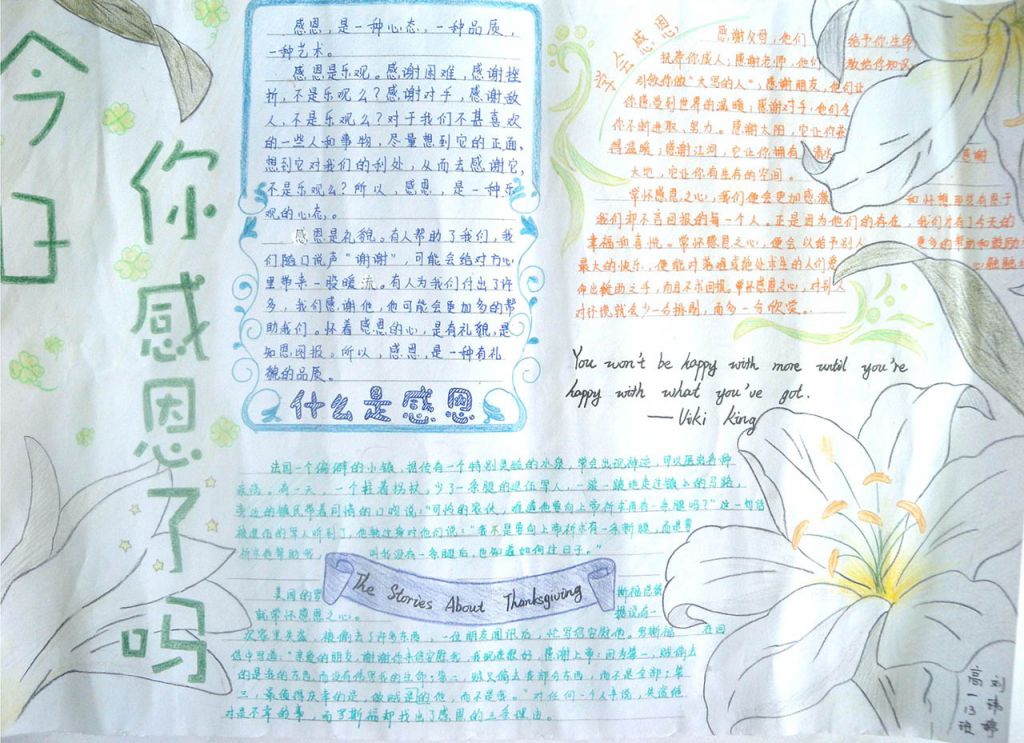 今日
你感恩了吗
感恩，是一种心态，一种品质，
一种艺术。
感恩是乐观。感谢困难，感谢挫
折，不是乐观么？感谢对手，感谢敌
人，不是乐观么？对于我们不甚喜欢
的一些人和事物，尽量想到它的正面，
想到它对我们的利处，从而去感谢它，
不是乐观么？所以，感恩，是一种乐
观的心态。
感恩是礼貌。有人帮助了我们，我
们随口说声“谢谢”，可能会给对方心
里带来一股暖流。有人为我们付出了许
多，我们感谢他，他可能会更加多的帮
助我们。怀着感恩的心，是有礼貌，是
知恩图报。所以，感恩，是一种有礼
貌的品质。
什么是感恩
学会感恩
感谢父母，他们给予你生命，
抚养你成人；感谢老师，他们教给你知识，
引领你做“大写的人”；感谢朋友，他们让
你感受到世界的温暖；感谢对手，他们令
你不断进取、努力。感谢太阳，它让你获
得温暖；感谢江河，它让你拥有清水；感谢
大地，它让你有生存的空间。
常怀感恩之心，我们便会更加感激和怀想那些有恩于
我们却不言回报的每一个人。正是因为他们的存在，我们才有了今天的
幸福和喜悦。常怀感恩之心，便会以给予别人更多的帮助和鼓励为
最大的快乐，便能对落难或绝处求生的人们爱心融融
伸出救助之手，而且不求回报。常怀感恩之心，对别人
对环境就会少一份挑剔，而多一份欣赏。
You won't be happy with more until you're
happy with what you've got.
——Viki King
法国一个偏僻的小镇，据传有一个特别灵验的水泉，常会出现神迹，可以医治各种
疾病。有一天，一个拄着拐杖，少了一条腿的退伍军人，一跛一跛地走过镇上的马路，
旁边的镇民带着同情的口吻说：“可怜的家伙，难道他要向上帝祈求再有一条腿吗？”这一句话
被退伍的军人听到了，他转过身对他们说：“我不是要向上帝祈求有一条新腿，而是要
祈求他帮助我，叫我没有一条腿后，也知道如何过日子。”
The Stories About Thanksgiving
美国的罗斯福总统
就常怀感恩之心。据说有一
次家里失盗，被偷去了许多东西，一位朋友闻讯后，忙写信安慰他。罗斯福在回
信中写道：“亲爱的朋友，谢谢你来信安慰我，我现在很好，感谢上帝：因为第一，贼偷去
的是我的东西，而没有伤害我的生命；第二，贼只偷去我部分东西，而不是全部；第
三，最值得庆幸的是，做贼的是他，而不是我。”对任何一个人来说，失盗绝
对是不幸的事，而罗斯福却找出了感恩的三条理由。
高一13班
刘祎婷